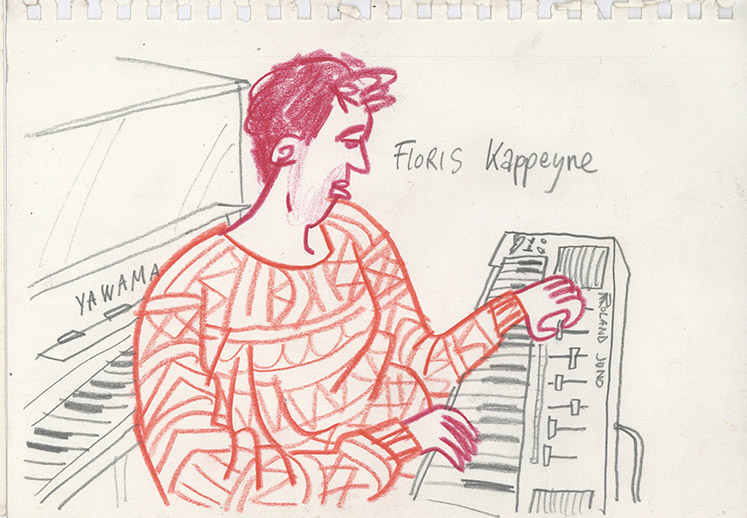 FLORIS Kappeyne
YAWAMA
ROLAND JUNO